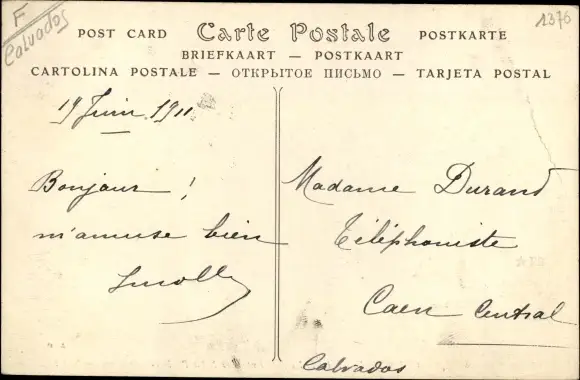 F
Calvados
1376
POST CARD Carte Postale POSTKARTE
BRIEFKAART — POSTKAART
CARTOLINA POSTALE — ОТКРЫТОЕ ПИСЬМО — TARJETA POSTAL
19 Juin 1911
Bonjour !
m'amuse bien
Madame Durand
Téléphoniste
Caen Central
Calvados